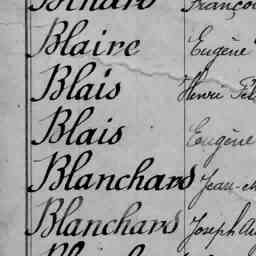 Blaire Eugène
Blais Henri
Blais Eugène
Blanchard Jean
Blanchard Joseph